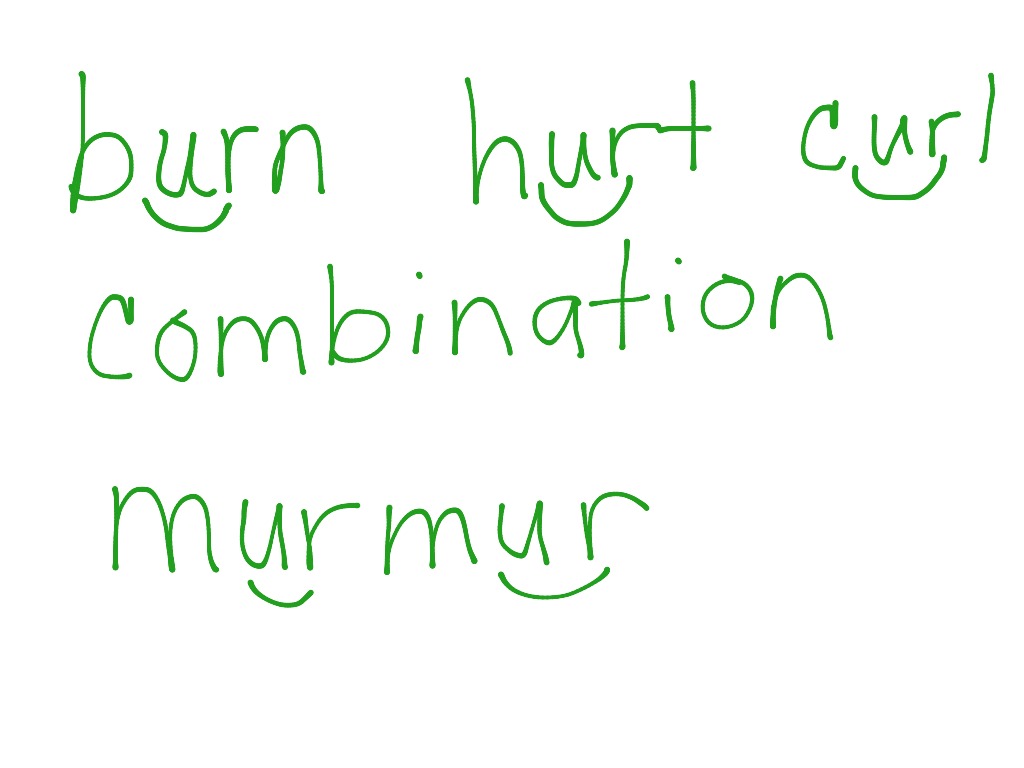 burn hurt curl
combination
murmur